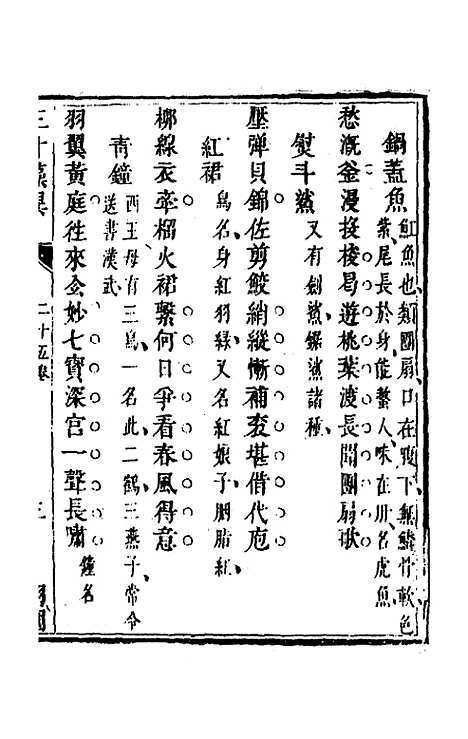 鍋蓋魚
魟魚也類團扇口在腹下無鱗骨軟色
紫尾長於身能螫人味在肝名虎魚
愁溉釜漫投梭曷遊桃葉渡長聞團扇歌
熨斗鯊 又有劍鯊鋸鯊諸種
壓彈貝錦佐剪鮫綃縱慚補袞堪借代庖
紅裙 鳥名身紅羽綠又名紅娘子胭脂紅
柳線衣牽榴火裙繫何日爭看春風得意
青鐘 西王母有三鳥一名此二鶴三燕子常令
送書漢武
羽翼黃庭往來金妙七寶深宮一聲長嘯 鐘名
二十五卷
三